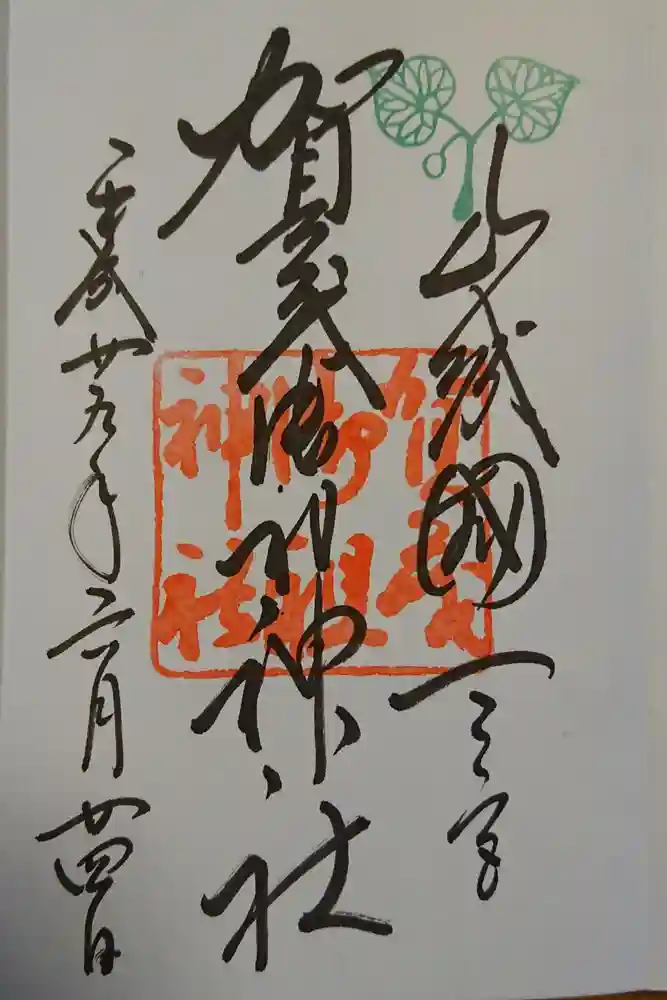 山城國一之宮
賀茂御祖神社
平成廿九年二月廿四日
賀茂
御祖
神社